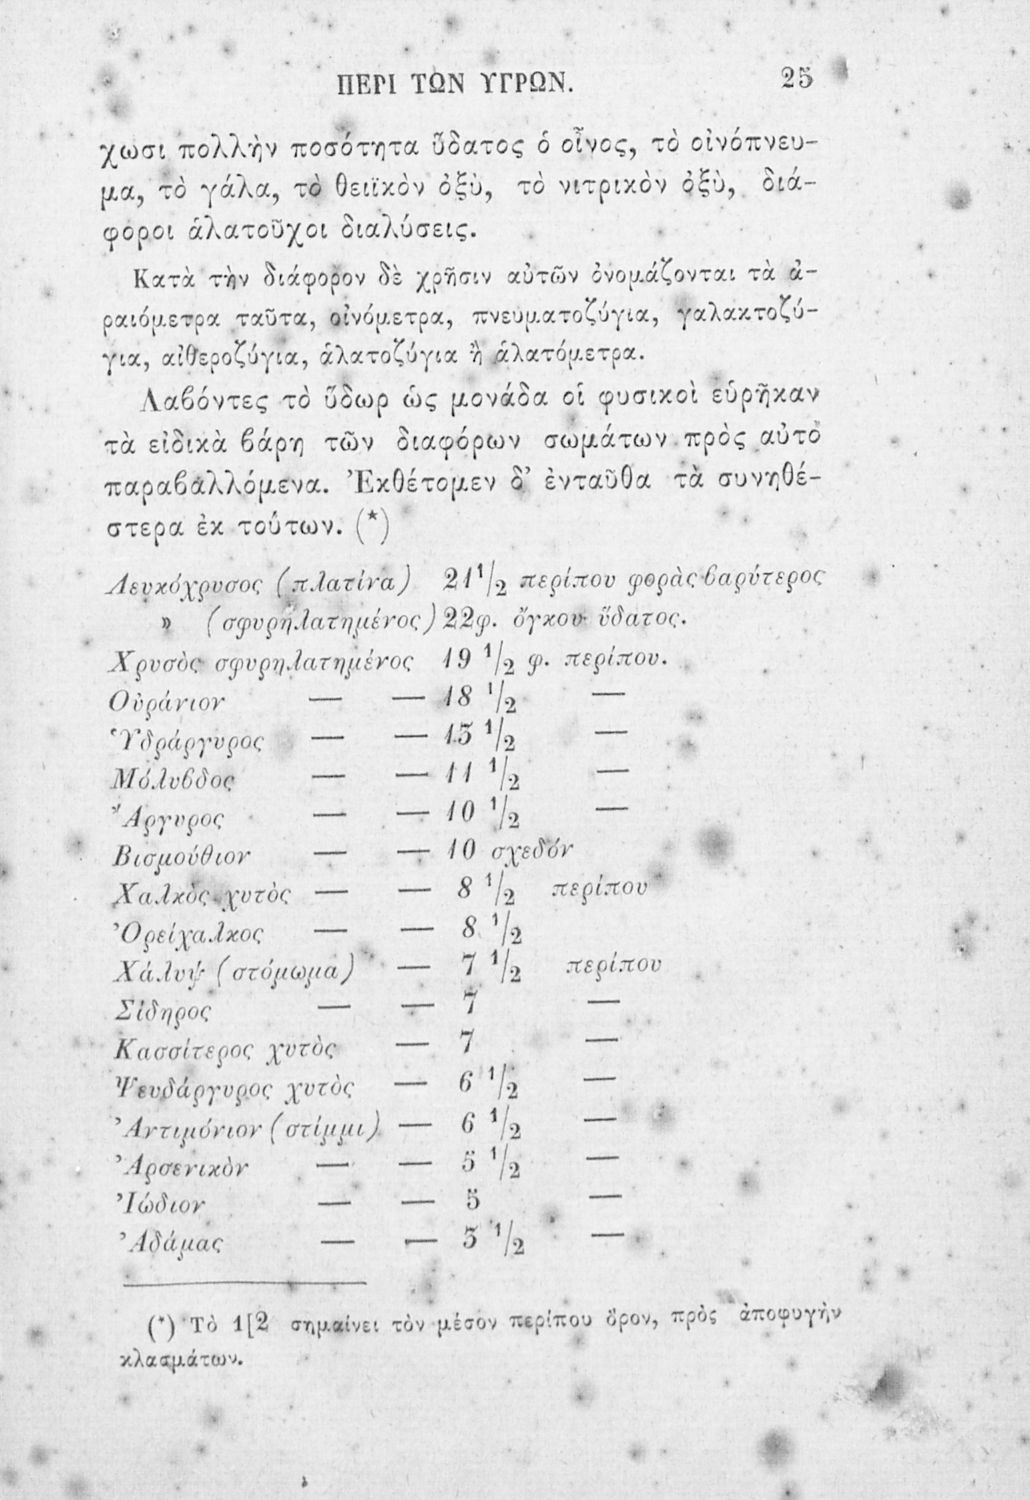 ΠΕΡΙ ΤΩΝ ΥΓΡΩΝ. 25
χωσι πολλὴν ποσότητα ὕδατος ὁ οἶνος, τὸ οἰνόπνευ-
μα, τὸ γάλα, τὸ θειϊκὸν ὀξὺ, τὸ νιτρικὸν ὀξὺ, διά-
φοροι ἁλατοῦχοι διαλύσεις.
Κατὰ τὴν διάφορον δὲ χρῆσιν αὐτῶν ὀνομάζονται τὰ ἀ-
ραιόμετρα ταῦτα, οἰνόμετρα, πνευματοζύγια, γαλακτοζύ-
για, αἰθεροζύγια, ἁλατοζύγια ἢ ἁλατόμετρα.
Λαβόντες τὸ ὕδωρ ὡς μονάδα οἱ φυσικοὶ εὑρῆκαν
τὰ εἰδικὰ βάρη τῶν διαφόρων σωμάτων πρὸς αὐτὸ
παραβαλλόμενα. Ἐκθέτομεν δ' ἐνταῦθα τὰ συνηθέ-
στερα ἐκ τούτων. (*)
Λευκόχρυσος (πλατίνα) 21 1/2 περίπου φορὰς βαρύτερος
» (σφυρηλατημένος) 22φ. ὄγκου ὕδατος.
Χρυσὸς σφυρηλατημένος 19 1/2 φ. περίπου.
Οὐράνιον — — 18 1/2 —
Ὑδράργυρος — — 13 1/2 —
Μόλυβδος — — 11 1/2 —
Ἄργυρος — — 10 1/2 —
Βισμούθιον — — 10 σχεδόν
Χαλκὸς χυτὸς — — 8 1/2 περίπου
Ὀρείχαλκος — — 8 1/2
Χάλυψ (στόμωμα) — 7 1/2 περίπου
Σίδηρος — — 7 —
Κασσίτερος χυτὸς — 7 —
Ψευδάργυρος χυτὸς — 6 1/2 —
Ἀντιμόνιον (στίμμι) — 6 1/2 —
Ἀρσενικὸν — — 5 1/2 —
Ἰώδιον — — 5 —
Ἀδάμας — — 3 1/2 —
(*) Τὸ 1[2 σημαίνει τὸν μέσον περίπου ὅρον, πρὸς ἀποφυγὴν
κλασμάτων.